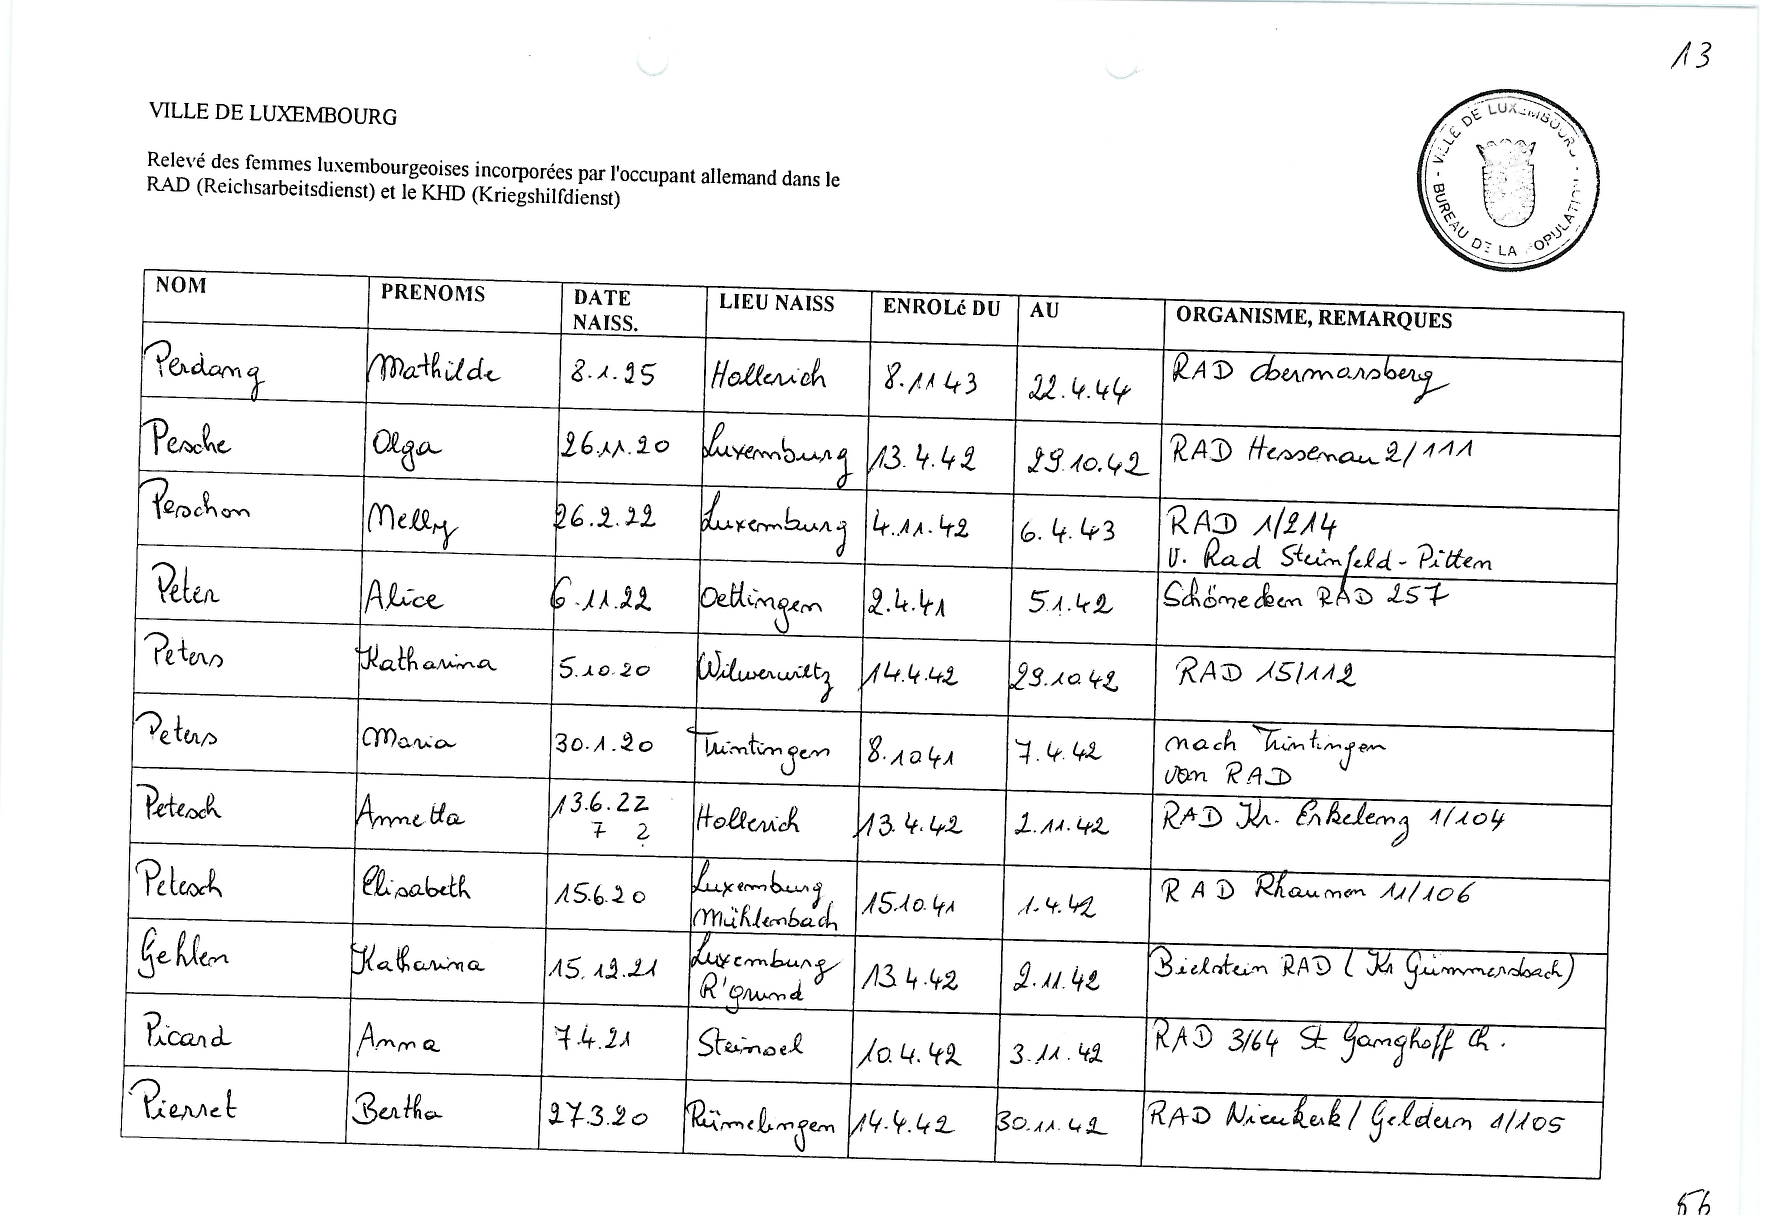 13
VILLE DE LUXEMBOURG
VILLE DE LUXEMBOURG - BUREAU DE LA POPULATION -
Relevé des femmes luxembourgeoises incorporées par l'occupant allemand dans le
RAD (Reichsarbeitsdienst) et le KHD (Kriegshilfdienst)
NOM PRENOMS DATE NAISS. LIEU NAISS ENROLé DU AU ORGANISME, REMARQUES
Perdang Mathilde 8.1.25 Hollerich 8.11 43 22.4.44 RAD Obermarsberg
Pesche Olga 26.11.20 Luxemburg 13.4.42 29.10.42 RAD Hessenau 2/111
Peschon Melly 26.2.22 Luxemburg 4.11.42 6.4.43 RAD 1/214
v. Rad Steinfeld-Pitten
Peter Alice 6.11.22 Oettingen 2.4.41 5.1.42 Schönecken RAD 257
Peters Katharina 5.10.20 Wilwerwiltz 14.4.42 29.10.42 RAD 15/112
Peters Maria 30.1.20 Trintingen 8.10 41 7.4.42 nach Trintingen
von RAD
Petesch Annetta 13.6.22 Hollerich 13.4.42 2.11.42 RAD Kr. Erkeleng 1/104
7 ?
Petesch Elisabeth 15.6.20 Luxemburg 15.10.41 1.4.42 RAD Rhaunen 11/106
Mühlenbach
Gehlen Katharina 15.12.21 Luxemburg 13.4.42 2.11.42 Bielstein RAD (Kr Gümmersbach)
R'grund
Picard Anna 7.4.21 Steinsel 10.4.42 3.11.42 RAD 3/64 St Ganghoff Ch.
Pierret Bertha 27.3.20 Rümelingen 14.4.42 30.11.42 RAD Nieukerk/Geldern 1/105